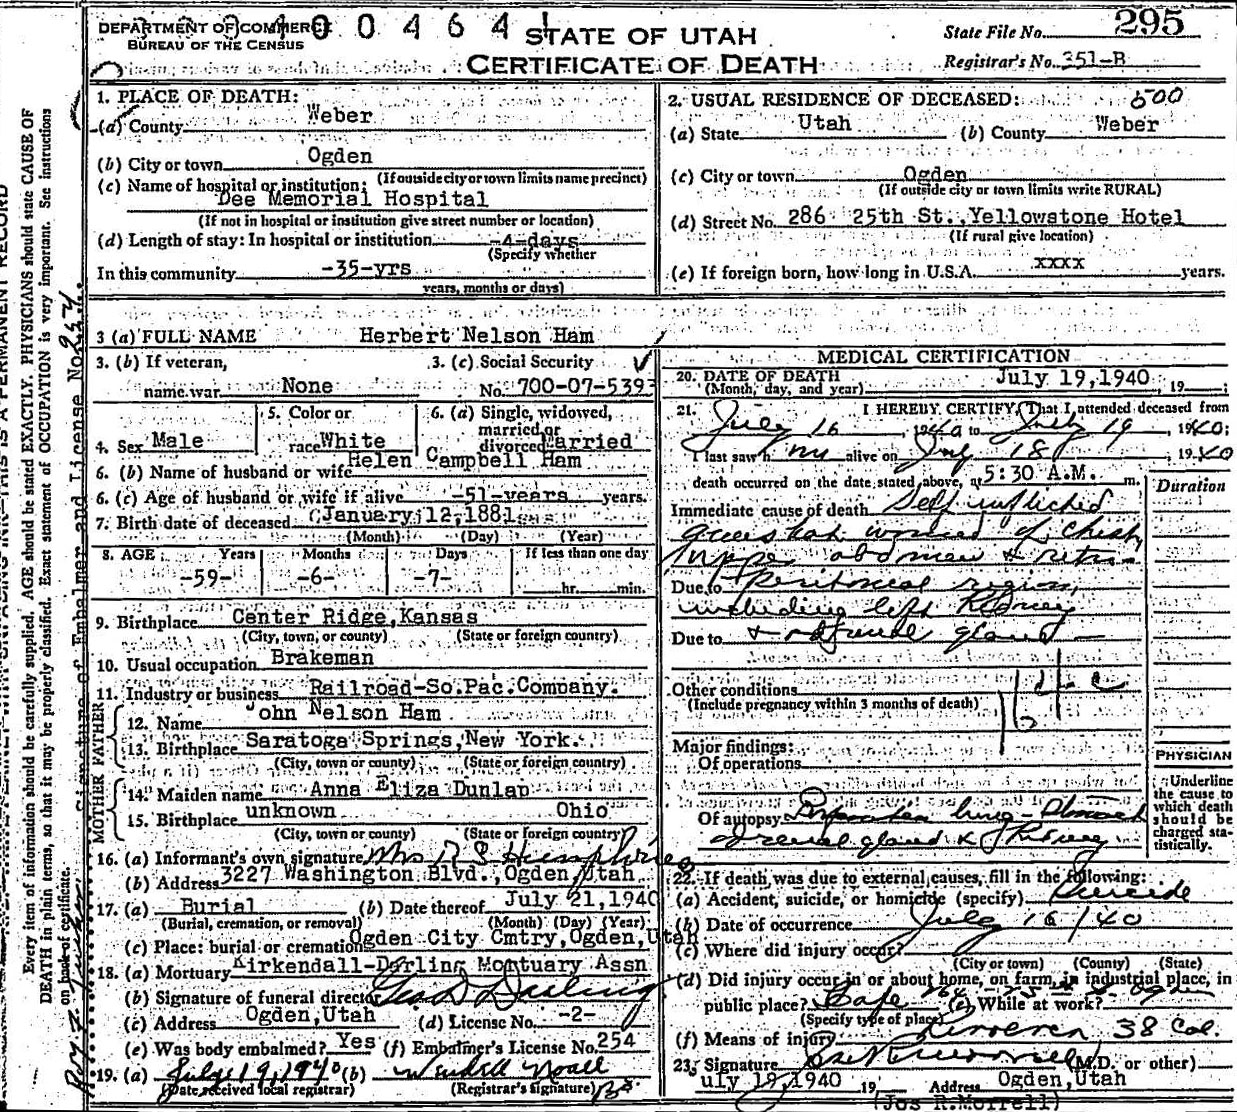 DEPARTMENT OF COMMERCE
BUREAU OF THE CENSUS
400464
STATE OF UTAH
CERTIFICATE OF DEATH
State File No. 295
Registrar's No. 351-B
1. PLACE OF DEATH:
(a) County Weber
(b) City or town Ogden
(If outside city or town limits name precinct)
(c) Name of hospital or institution:
Dee Memorial Hospital
(If not in hospital or institution give street number or location)
(d) Length of stay: In hospital or institution -4-days
(Specify whether
In this community -35-yrs
years, months or days)
2. USUAL RESIDENCE OF DECEASED: 500
(a) State Utah (b) County Weber
(c) City or town Ogden
(If outside city or town limits write RURAL)
(d) Street No. 286 25th St., Yellowstone Hotel
(If rural give location)
(e) If foreign born, how long in U.S.A. xxxx years.
3 (a) FULL NAME Herbert Nelson Ham
3. (b) If veteran,
name war None
3. (c) Social Security
No. 700-07-5393
4. Sex Male
5. Color or
race White
6. (a) Single, widowed,
married or
divorced Married
6. (b) Name of husband or wife Helen Campbell Ham
6. (c) Age of husband or wife if alive -51-years years.
7. Birth date of deceased January 12, 1881
(Month) (Day) (Year)
8. AGE Years Months Days If less than one day
-59- -6- -7- hr. min.
9. Birthplace Center Ridge, Kansas
(City, town, or county) (State or foreign country)
10. Usual occupation Brakeman
11. Industry or business Railroad-So.Pac.Company.
FATHER
12. Name John Nelson Ham
13. Birthplace Saratoga Springs, New York.
(City, town or county) (State or foreign country)
MOTHER
14. Maiden name Anna Eliza Dunlap
15. Birthplace unknown Ohio
(City, town or county) (State or foreign country)
16. (a) Informant's own signature Mrs R S Humphries
(b) Address 3227 Washington Blvd., Ogden, Utah
17. (a) Burial (b) Date thereof July 21, 1940
(Burial, cremation, or removal) (Month) (Day) (Year)
(c) Place: burial or cremation Ogden City Cmtry, Ogden, Utah
18. (a) Mortuary Kirkendall-Darling Mortuary Assn
(b) Signature of funeral director Geo D Darling
(c) Address Ogden, Utah (d) License No. -2-
(e) Was body embalmed? Yes (f) Embalmer's License No. 254
19. (a) July 19, 1940 (b) Wendell Noall
(Date received local registrar) (Registrar's signature)
MEDICAL CERTIFICATION
20. DATE OF DEATH July 19, 1940, 19
(Month, day, and year)
21. I HEREBY CERTIFY, That I attended deceased from
July 16, 1940 to July 19, 1940;
last saw him alive on July 18, 1940
death occurred on the date stated above, at 5:30 A.M. m.
Duration
Immediate cause of death Self inflicted
gunshot wound of chest,
upper abdomen & retro-
Due to peritoneal region,
including left Kidney
Due to & adrenal gland
Other conditions
(Include pregnancy within 3 months of death)
Major findings:
Of operations
PHYSICIAN
Underline
the cause to
which death
should be
charged sta-
tistically.
Of autopsy lung - Stomach
adrenal gland & Kidney
22. If death was due to external causes, fill in the following:
(a) Accident, suicide, or homicide (specify) Suicide
(b) Date of occurrence July 16/40
(c) Where did injury occur?
(City or town) (County) (State)
(d) Did injury occur in or about home, on farm, in industrial place, in
public place? Cafe (e) While at work?
(Specify type of place)
(f) Means of injury Revolver 38 Cal.
23. Signature Jos R Morrell (M.D. or other)
July 19, 1940 19 Address Ogden, Utah
(Jos R. Morrell)
THIS IS A PERMANENT RECORD
Every item of information should be carefully supplied. AGE should be stated EXACTLY. PHYSICIANS should state CAUSE OF
DEATH in plain terms, so that it may be properly classified. Exact statement of OCCUPATION is very important. See instructions
on back of certificate.
Signature of Embalmer and License No. 254